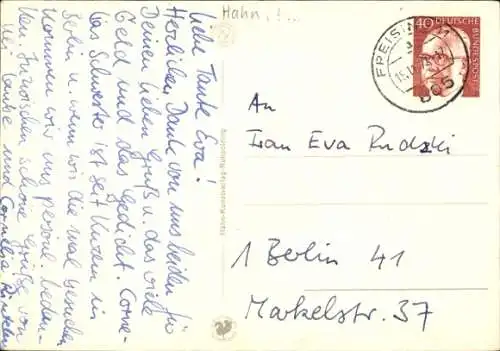 Hahn, !...
Liebe Tante Eva!
Herzlichen Dank von uns beiden für
Deinen lieben Gruß u. das viele
Geld und das Gedicht. Corne-
lias Schwester ist seit Kurzem in
Köln u. wenn wir die mal besuchen
kommen wir uns persönl. bedan-
ken. Inzwischen schöne Grüße von
und Cornelia
40 DEUTSCHE
BUNDESPOST
FREISING 11
805
An
Frau Eva Rudzki
1 Berlin 41
Markelstr. 37